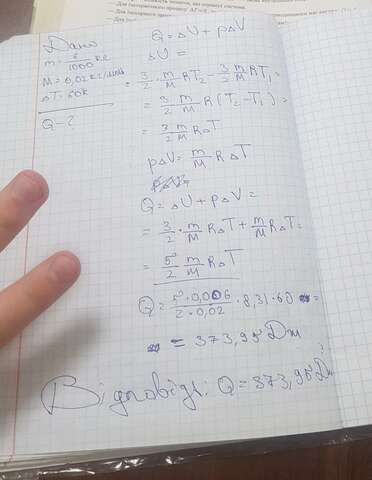 Для ізотермічного процесу
Дано
m = 6/1000 кг
M = 0,02 кг/моль
ΔT = 60K
Q - ?
Q = ΔU + pΔV
ΔU =
= 3/2 · m/M RT₂ - 3/2 m/M RT₁ =
= 3/2 m/M R(T₂ - T₁) =
= 3/2 m/M RΔT
pΔV = m/M RΔT
Q = ΔU + pΔV =
= 3/2 · m/M RΔT + m/M RΔT =
= 5/2 m/M RΔT
Q = 5·0,006/2·0,02 · 8,31·60 =
= 373,95 Дж
Відповідь: Q = 373,95 Дж